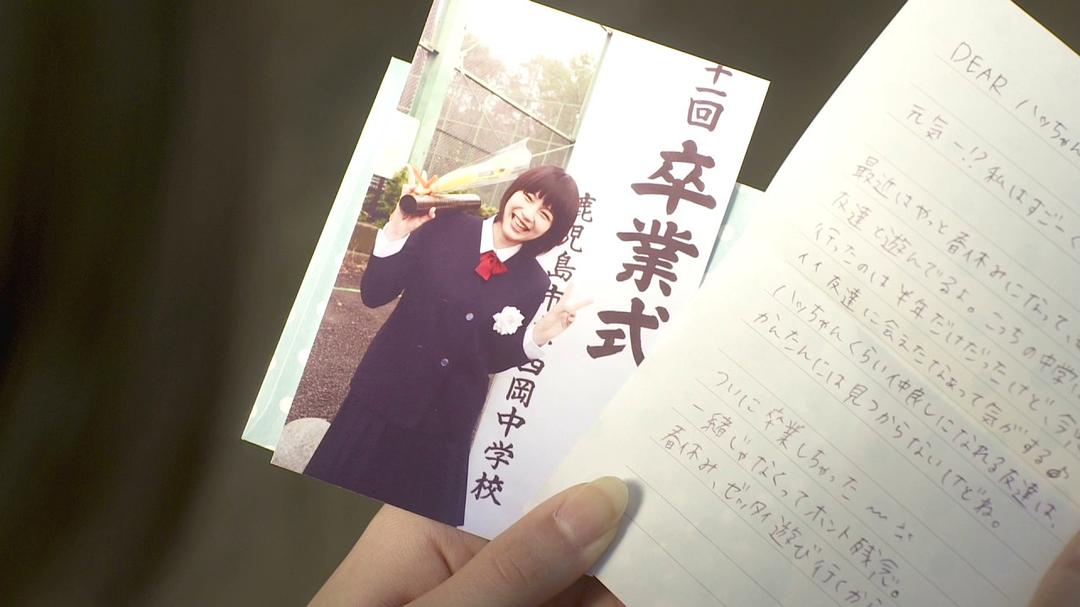 十一回
卒業式
鹿児島市
西岡中学校
DEAR ハッちゃん
元気ー!? 私はすごーく
最近はやっと春休みになって、
友達と遊んでるよ。こっちの中学に
行ったのは半年だけだったけど、今
イイ友達に会えたなぁって気がする♪
ハッちゃんくらい仲良しになれる友達は、
かんたんには見つからないけどね。
ついに卒業しちゃった
一緒じゃなくってホント残念。
春休み、ゼッタイ遊び行くから